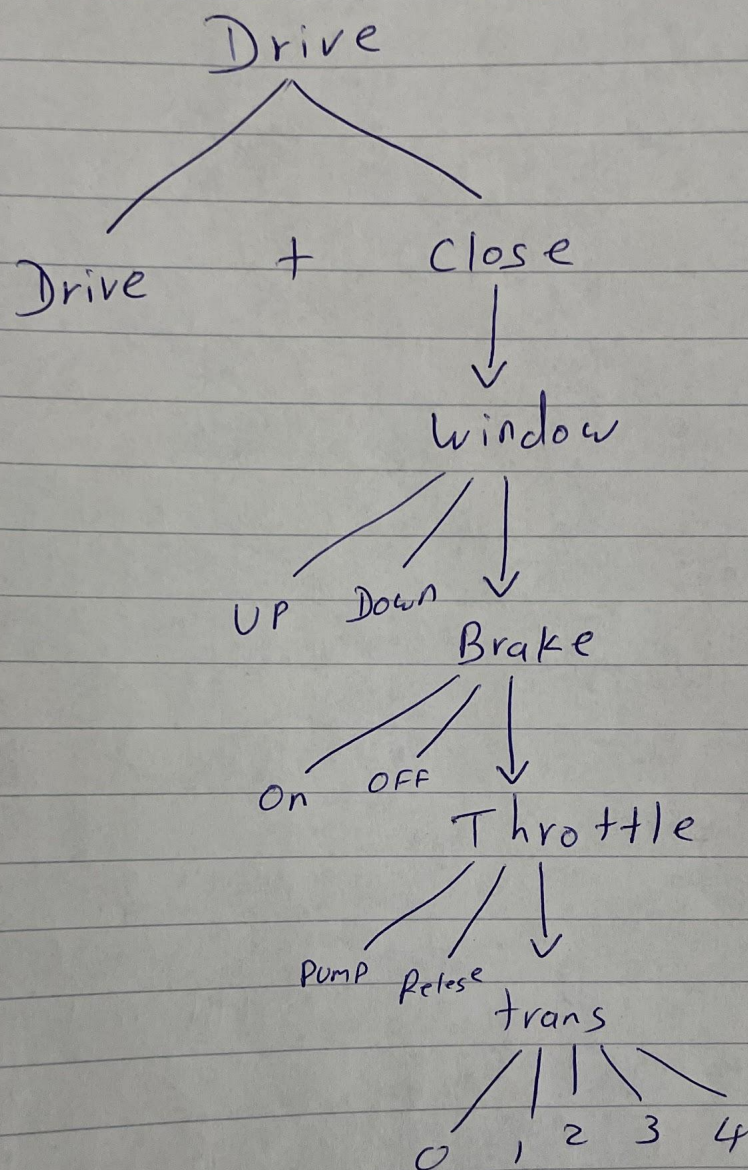 Drive
Drive + Close
Window
UP Down
Brake
On OFF
Throttle
Pump Relese
trans
0 1 2 3 4